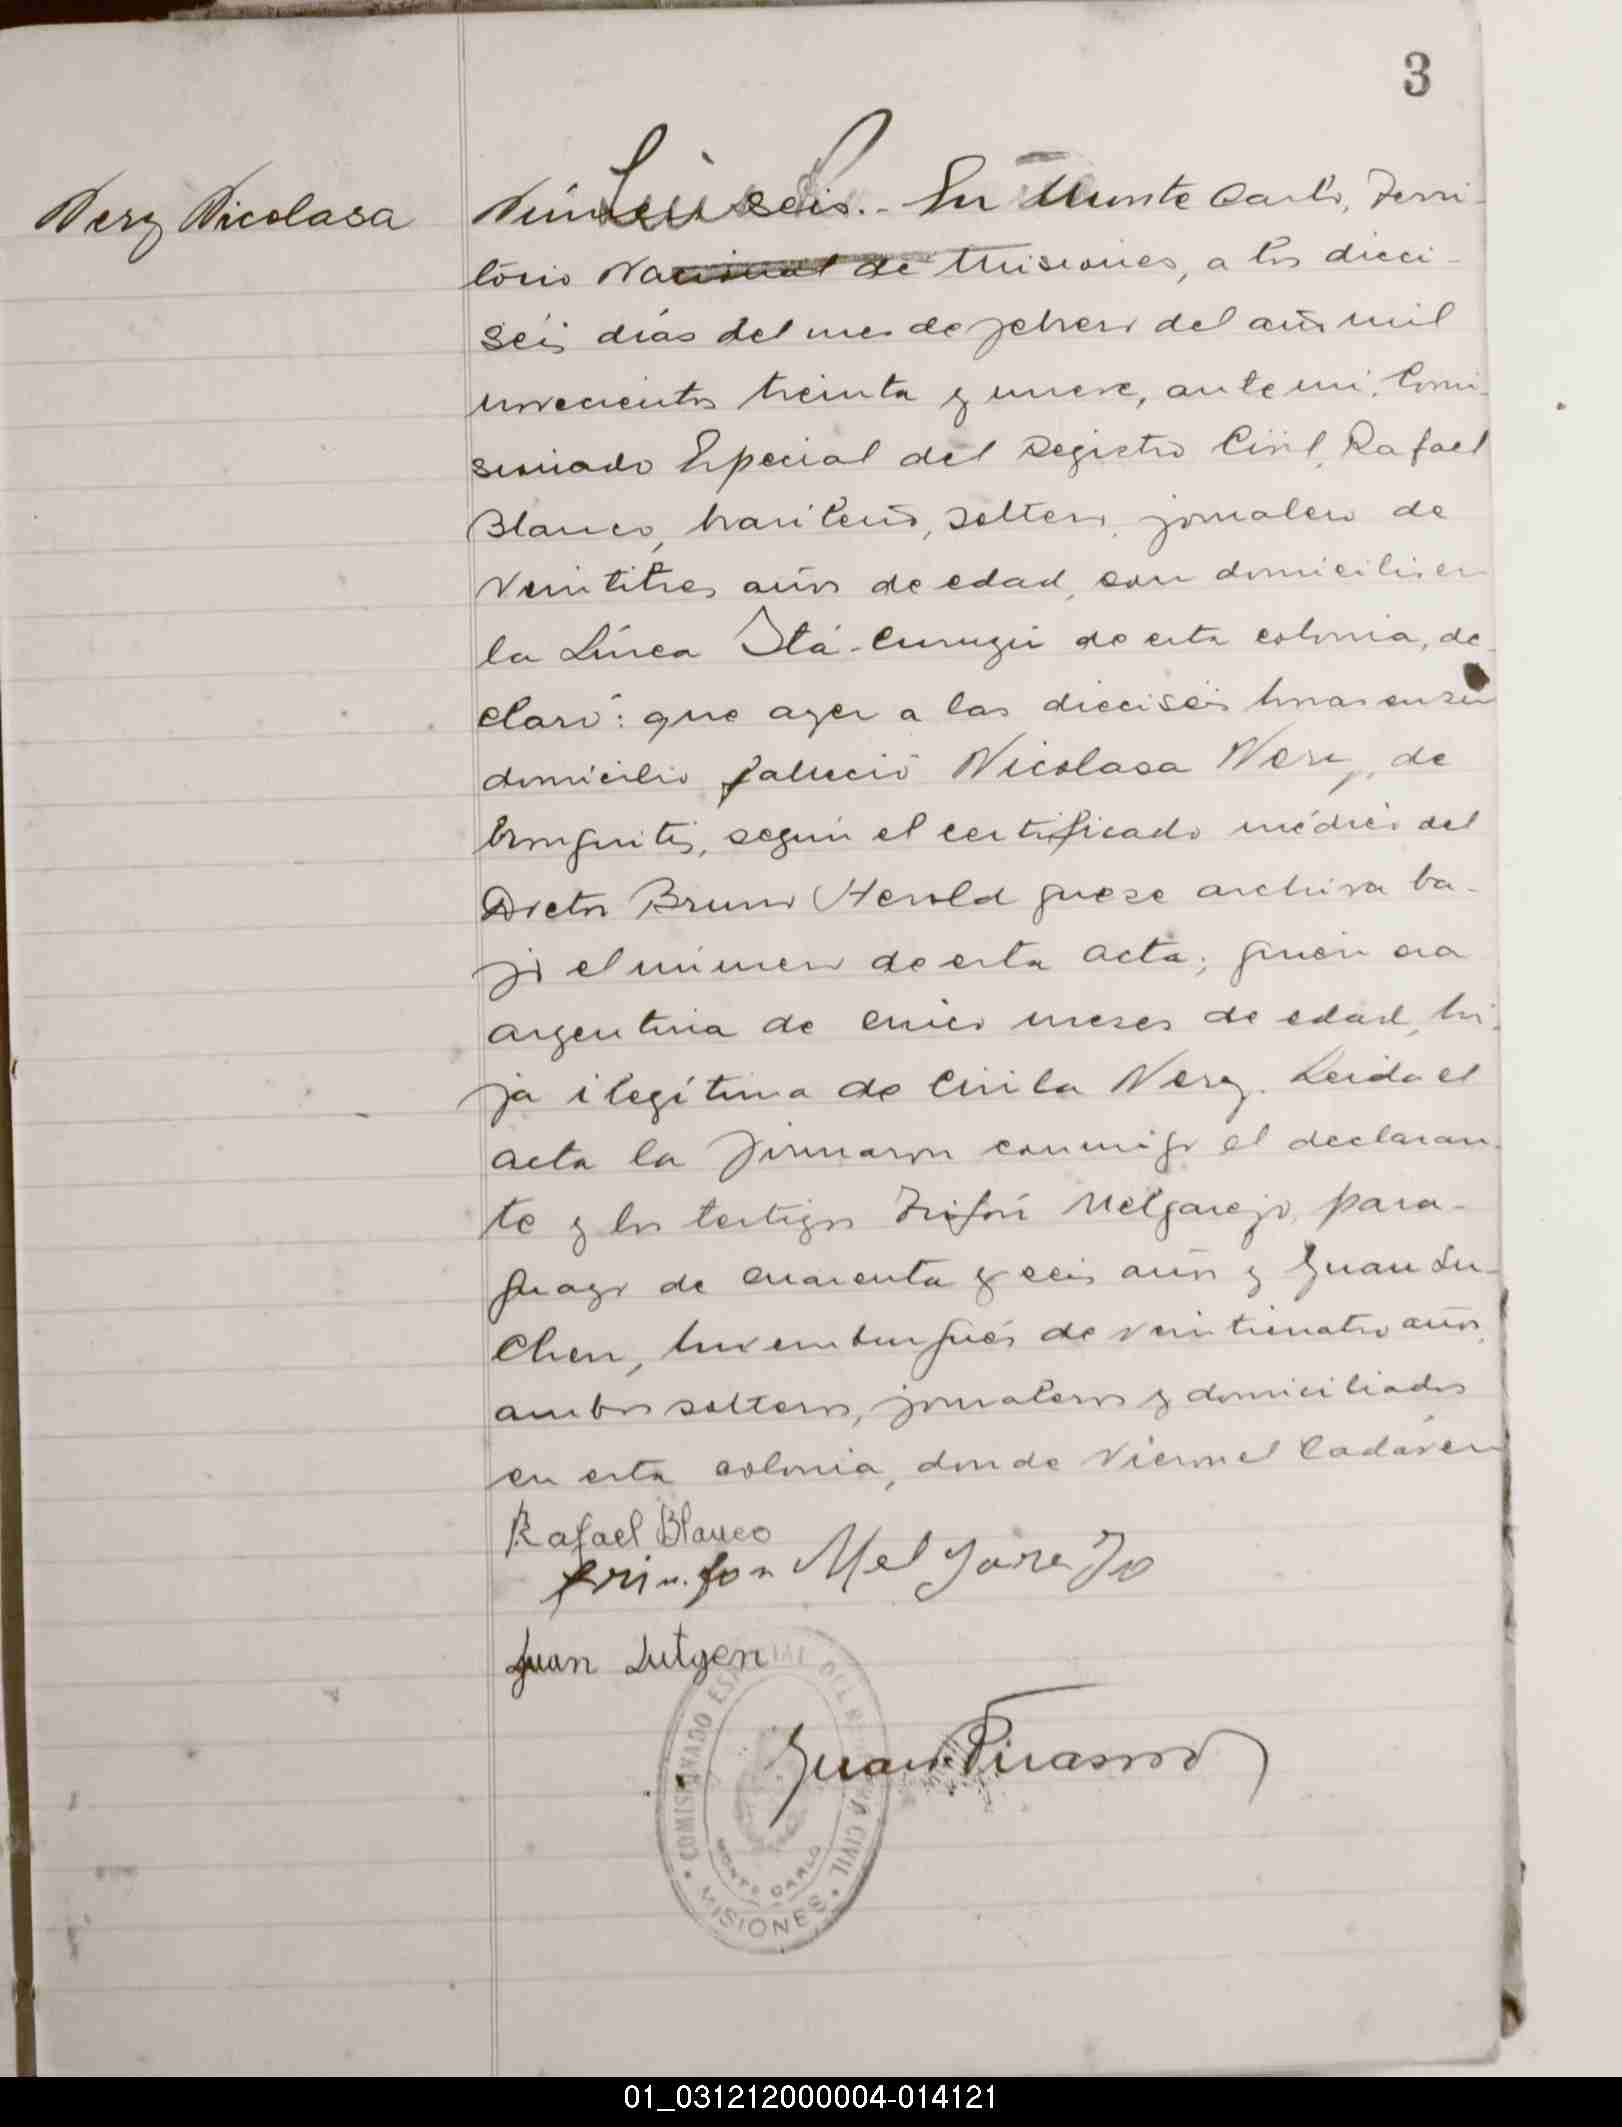 3
Nerz Nicolasa
Número seis.- En Monte Carlo, Terri-
torio Nacional de Misiones, a los dieci-
séis días del mes de febrero del año mil
novecientos treinta y nueve, ante mi, Comi-
sionado Especial del Registro Civil, Rafael
Blanco, brasileño, soltero, jornalero de
veintitres años de edad, con domicilio en
la Línea Itá-Curuzú de esta colonia, de-
claró: que ayer a las dieciséis horas en su
domicilio falleció Nicolasa Nerz, de
bronquitis, según el certificado médico del
Doctor Bruno Herold que se archiva ba-
jo el número de esta acta; quién era
argentina de cinco meses de edad, hi-
ja ilegítima de Cirila Nerz. Leida el
acta la firmaron conmigo el declaran-
te y los testigos Trifón Melgarejo, para-
guayo de cuarenta y seis años y Juan Lu-
chen, luxemburgués de veinticuatro años,
ambos solteros, jornaleros y domiciliados
en esta colonia, donde vieron el cadáver
Rafael Blanco
Trinfon Melgarejo
Juan Lutgen
Juan
COMISIONADO ESPECIAL DEL REGISTRO CIVIL
MONTE CARLO
MISIONES
01_031212000004-014121